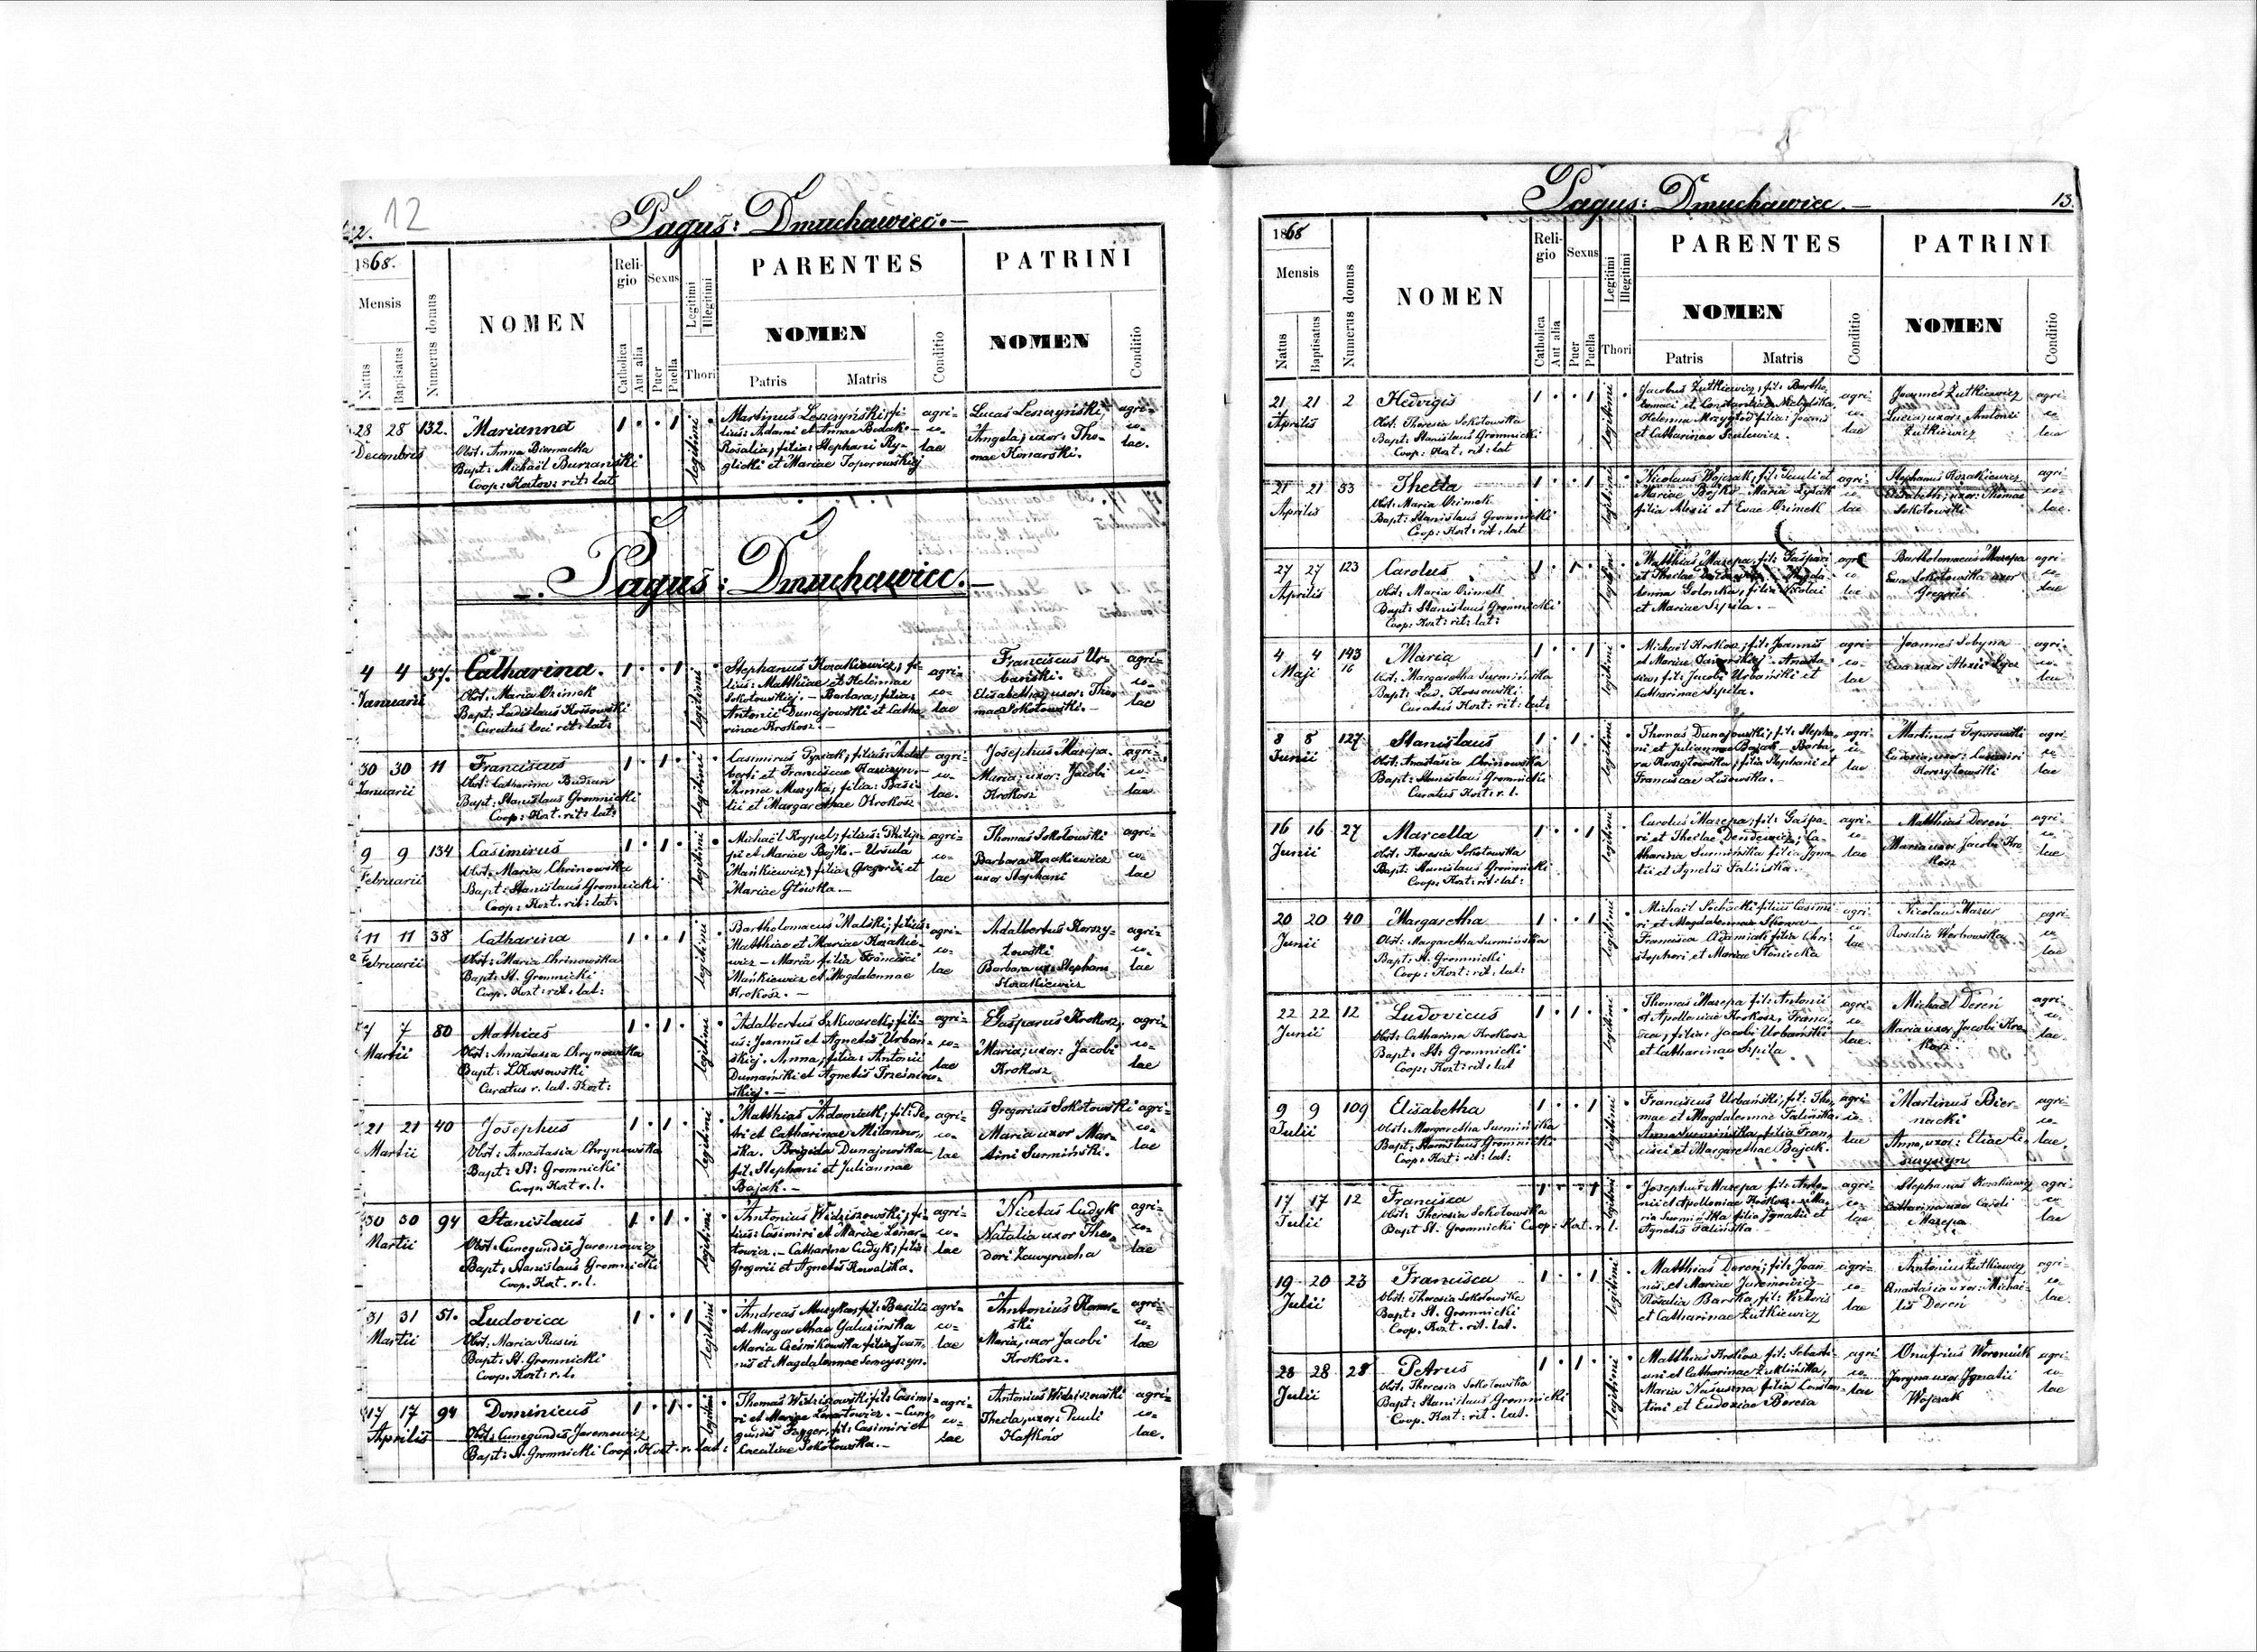 12.
12
Pagus: Dmuchawiec.
1868.
Mensis
Natus
Baptisatus
Numerus domus
NOMEN
Religio
Catholica
Aut alia
Sexus
Puer
Puella
Legitimi
Illegitimi
Thori
PARENTES
NOMEN
Patris
Matris
Conditio
PATRINI
NOMEN
Conditio
28 28 132. Marianna
Decembris
Obst: Anna Biernacka
Bapt: Michaël Burzański
Coop: Kozlov: rit: lat
legitimi
Martinus Leszczyński, fi-
lius: Adami et Annae Bodak -
Rosalia, filia: Stephani Ry-
glicki et Mariae Toporowskiej
agri-
co-
lae
Lucas Leszczyński,
Angela, uxor: Tho-
mae Konarski.
agri-
co-
lae.
Pagus: Dmuchawiec.
4 4 37. Catharina.
Januarii
Obst: Maria Ozimek
Bapt: Ladislaus Kossowski
Curatus loci rit: lat:
legitimi
Stephanus Kozakiewicz, fi-
lius: Matthiae et Helenae
Sokołowskiej. - Barbara, filia:
Antonii Dunajowski et Catha-
rinae Krokosz. -
agri-
co-
lae
Franciscus Ur-
bański.
Elisabetha, uxor: Tho-
mae Sokołowski. -
agri-
co-
lae
30 30 11 Franciscus
Januarii
Obst: Catharina Budzan
Bapt: Stanislaus Gromnicki
Coop: Kozt. rit: lat:
legitimi
Casimirus Pyziak, filius: Adal-
berti et Franciscae
Anna Muzyka, filia: Basi-
lii et Margarethae Krokosz
agri-
co-
lae.
Josephus Mazepa.
Maria, uxor: Jacobi
Krokosz
agri-
co-
lae
9 9 134 Casimirus
Februarii
Obst: Maria Chrinowska
Bapt: Stanislaus Gromnicki
Coop: Kozt. rit: lat:
legitimi
Michaël Krypel, filius: Philip-
pi et Mariae Bojko. - Ursula
Mańkiewicz, filia: Gregorii et
Mariae Główka. -
agri-
co-
lae
Thomas Sokołowski
Barbara Kozakiewicz
uxor Stephani
agri-
co-
lae
11 11 38 Catharina
Februarii
Obst: Maria Chrinowska
Bapt: St. Gromnicki
Coop. Kozt: rit: lat:
legitimi
Bartholomaeus Maliki, filius:
Matthiae et Mariae Kozakie-
wicz - Maria filia Francisci
Mańkiewicz et Magdalennae
Krokosz. -
agri-
co-
lae
Adalbertus Korzy-
towski
Barbara ux: Stephani
Kozakiewicz
agri-
co-
lae
7 7 80 Mathias
Martii
Obst: Anastasia Chrynowska
Bapt: L. Kossowski
Curatus r. lat. Kozt:
legitimi
Adalbertus Szkwarek, fili-
us: Joannis et Agnetis Urban-
skiej. Anna, filia: Antonii
Dumański et Agnetis Trześniow-
skiej. -
agri-
co-
lae
Gasparus Krokosz,
Maria, uxor: Jacobi
Krokosz
agri-
co-
lae
21 21 40 Josephus
Martii
Obst: Anastasia Chrynowska
Bapt: St: Gromnicki
Coop. Kozt r. l.
legitimi
Matthias Adamiak, fil: Pe-
tri et Catharinae Milanow-
ska. Brigida Dunajowska
fil: Stephani et Juliannae
Bajak. -
agri-
co-
lae
Gregorius Sokołowski
Maria uxor Mar-
tini Surmiński.
agri-
co-
lae
30 30 94 Stanislaus
Martii
Obst: Cunegundis Jaremowicz
Bapt: Stanislaus Gromnicki
Coop. Kozt. r. l.
legitimi
Antonius Widziszowski, fi-
lius: Casimiri et Mariae Lenar-
towicz. - Catharina Cudyk, filia:
Gregorii et Agnetis Kowalska.
agri-
co-
lae
Nicetas Cudyk
Natalia uxor Theo-
dori Zawyrucha
agri-
co-
lae
31 31 51. Ludovica
Martii
Obst: Maria Rusin
Bapt: St. Gromnicki
Coop. Kozt: r. l.
legitimi
Andreas Muzyka, fil: Basilii
et Margarethae Galuzinska
Maria Cieśnikowska filia Joan-
nis et Magdalennae
agri-
co-
lae
Antonius
Maria, uxor Jacobi
Krokosz.
agri-
co-
lae
17 17 94 Dominicus
Aprilis
Obst: Cunegundis Jaremowicz
Bapt: St. Gromnicki Coop. Kozt. r. lat:
legitimi
Thomas Widziszowski, fil: Casimi-
ri et Mariae Lenartowicz. - Cune-
gundis fil: Casimiri et
Caeciliae Sokołowska. -
agri-
co-
lae
Antonius Widziszowski
Thecla, uxor: Pauli
Hafków
agri-
co-
lae.
Pagus: Dmuchawiec. -
13.
1868
Mensis
Natus
Baptisatus
Numerus domus
NOMEN
Religio
Catholica
Aut alia
Sexus
Puer
Puella
Legitimi
Illegitimi
Thori
PARENTES
NOMEN
Patris
Matris
Conditio
PATRINI
NOMEN
Conditio
21 21 2 Hedvigis
Aprilis
Obst: Theresia Sokołowska
Bapt: Stanislaus Gromnicki
Coop: Kozt: rit: lat
legitimi
Jacobus Żutkiewicz, fil: Bartho-
lomaei et Constantiae
Helenna filia: Joannis
et Catharinae
agri-
co-
lae
Joannes Żutkiewicz
Lucia uxor: Antonii
Żutkiewicz
agri-
co-
lae
21 21 53 Thecla
Aprilis
Obst: Maria Ozimek
Bapt: Stanislaus Gromnicki
Coop: Kozt: rit: lat
legitimi
Nicolaus Wojczak, fil: Pauli et
Mariae Bojko - Maria Łysak
filia Alexii et Evae Ozimek
agri-
co-
lae
Stephanus Kozakiewicz
Elisabeth, uxor: Thomae
Sokołowski
agri-
co-
lae.
27 27 123 Carolus
Aprilis
Obst: Maria Ozimek
Bapt: Stanislaus Gromnicki
Coop: Kozt: rit: lat:
legitimi
Matthias Mazepa, fil: Gaspari
et Theclae Magda-
lenna Golonka, filia Nicolai
et Mariae Szpila. -
agri
co-
lae
Bartholomaeus Mazepa
Eva Sokołowska uxor
Gregorii
agri-
co-
lae
4 4 143
16
Maria
Maji
Obst: Margaretha Surmińska
Bapt: Lad. Kossowski
Curatus Kozt: rit: lat:
legitimi
Michaël Krokosz, fil: Joannis
et Mariae - Anasta-
sia, fil: Jacobi Urbański et
Catharinae Szpila.
agri-
co-
lae
Joannes Sobyna
Eva uxor Alexii
agri-
co-
lae
8 8 127 Stanislaus
Junii
Obst: Anastasia Chrinowska
Bapt: Stanislaus Gromnicki
Curatus Kozt: r. l.
legitimi
Thomas Dunajowski, fil: Stepha-
ni et Juliannae Bajak - Barba-
ra Korzytowska, filia Stephani et
Franciscae Lisowska. -
agri-
co-
lae
Martinus Toporowski
Eudoxia, uxor: Casimiri
Korzytowski
agri-
co-
lae
16 16 27 Marcella
Junii
Obst: Theresia Sokołowska
Bapt: Stanislaus Gromnicki
Coop: Kozt: rit: lat:
legitimi
Carolus Mazepa, fil: Gaspa-
ri et Theclae Dendewicz, Ca-
tharina Surmińska filia Igna-
tii et Agnetis Falińska.
agri-
co-
lae
Matthias Dereń
Maria uxor Jacobi Kro-
kosz
agri-
co-
lae
20 20 40 Margaretha
Junii
Obst: Margaretha Surmińska
Bapt: St. Gromnicki
Coop: Kozt: rit: lat:
legitimi
Michaël Sochacki filius Casimi-
ri et Magdalennae
Francisca Adamiak filia Chri-
stophori et Mariae Słoniecka
agri-
co-
lae
Nicolaus Mazur
Rosalia Werbowska
agri-
co-
lae
22 22 12 Ludovicus
Junii
Obst: Catharina Krokosz
Bapt: St: Gromnicki
Coop: Kozt: rit: lat
legitimi
Thomas Mazepa fil: Antonii
et Apolloniae Krokosz, Franci-
sca, filia: Jacobi Urbański
et Catharinae Szpila
agri-
co-
lae.
Michaël Dereń
Maria uxor Jacobi Kro-
kosz.
agri-
co-
lae.
9 9 109 Elisabetha
Julii
Obst: Margaretha Surmińska
Bapt: Stanislaus Gromnicki
Coop: Kozt: rit: lat:
legitimi
Franciscus Urbański, fil: Tho-
mae et Magdalennae Falińska.
Anna Surmińska, filia Fran-
cisci et Margarethae Bajak.
agri-
co-
lae
Martinus Bier-
nacki
Anna, uxor: Eliae
agri-
co-
lae
17 17 12 Francisca
Julii
Obst: Theresia Sokołowska
Bapt St. Gromnicki Coop: Kozt. r. l.
legitimi
Josephus Mazepa fil: Anto-
nii et Apolloniae Krokosz. - Ma-
ria Surmińska filia Ignatii et
Agnetis Falińska.
agri-
co-
lae
Stephanus Kozakiewicz
Catharina uxor Caroli
Mazepa
agri-
co-
lae
19 20 23 Francisca
Julii
Obst: Theresia Sokołowska
Bapt: St. Gromnicki
Coop. Kozt. rit. lat.
legitimi
Matthias Dereń, fil: Joan-
nis et Mariae Jaremowicz -
Rosalia Barska, fil: Victoris
et Catharinae Żutkiewicz
agri-
co-
lae
Antonius Żutkiewicz
Anastasia uxor: Michaë-
lis Dereń
agri-
co-
lae.
28 28 28 Petrus
Julii
Obst: Theresia Sokołowska
Bapt: Stanislaus Gromnicki
Coop. Kozt: rit. lat.
legitimi
Matthias Krokosz, fil: Sebasti-
ani et Catharinae
Maria filia Constan-
tini et Eudoxiae Bereza
agri-
co-
lae
Onufrius Woroniuk
Jryna uxor Ignatii
Wojczak
agri-
co-
lae